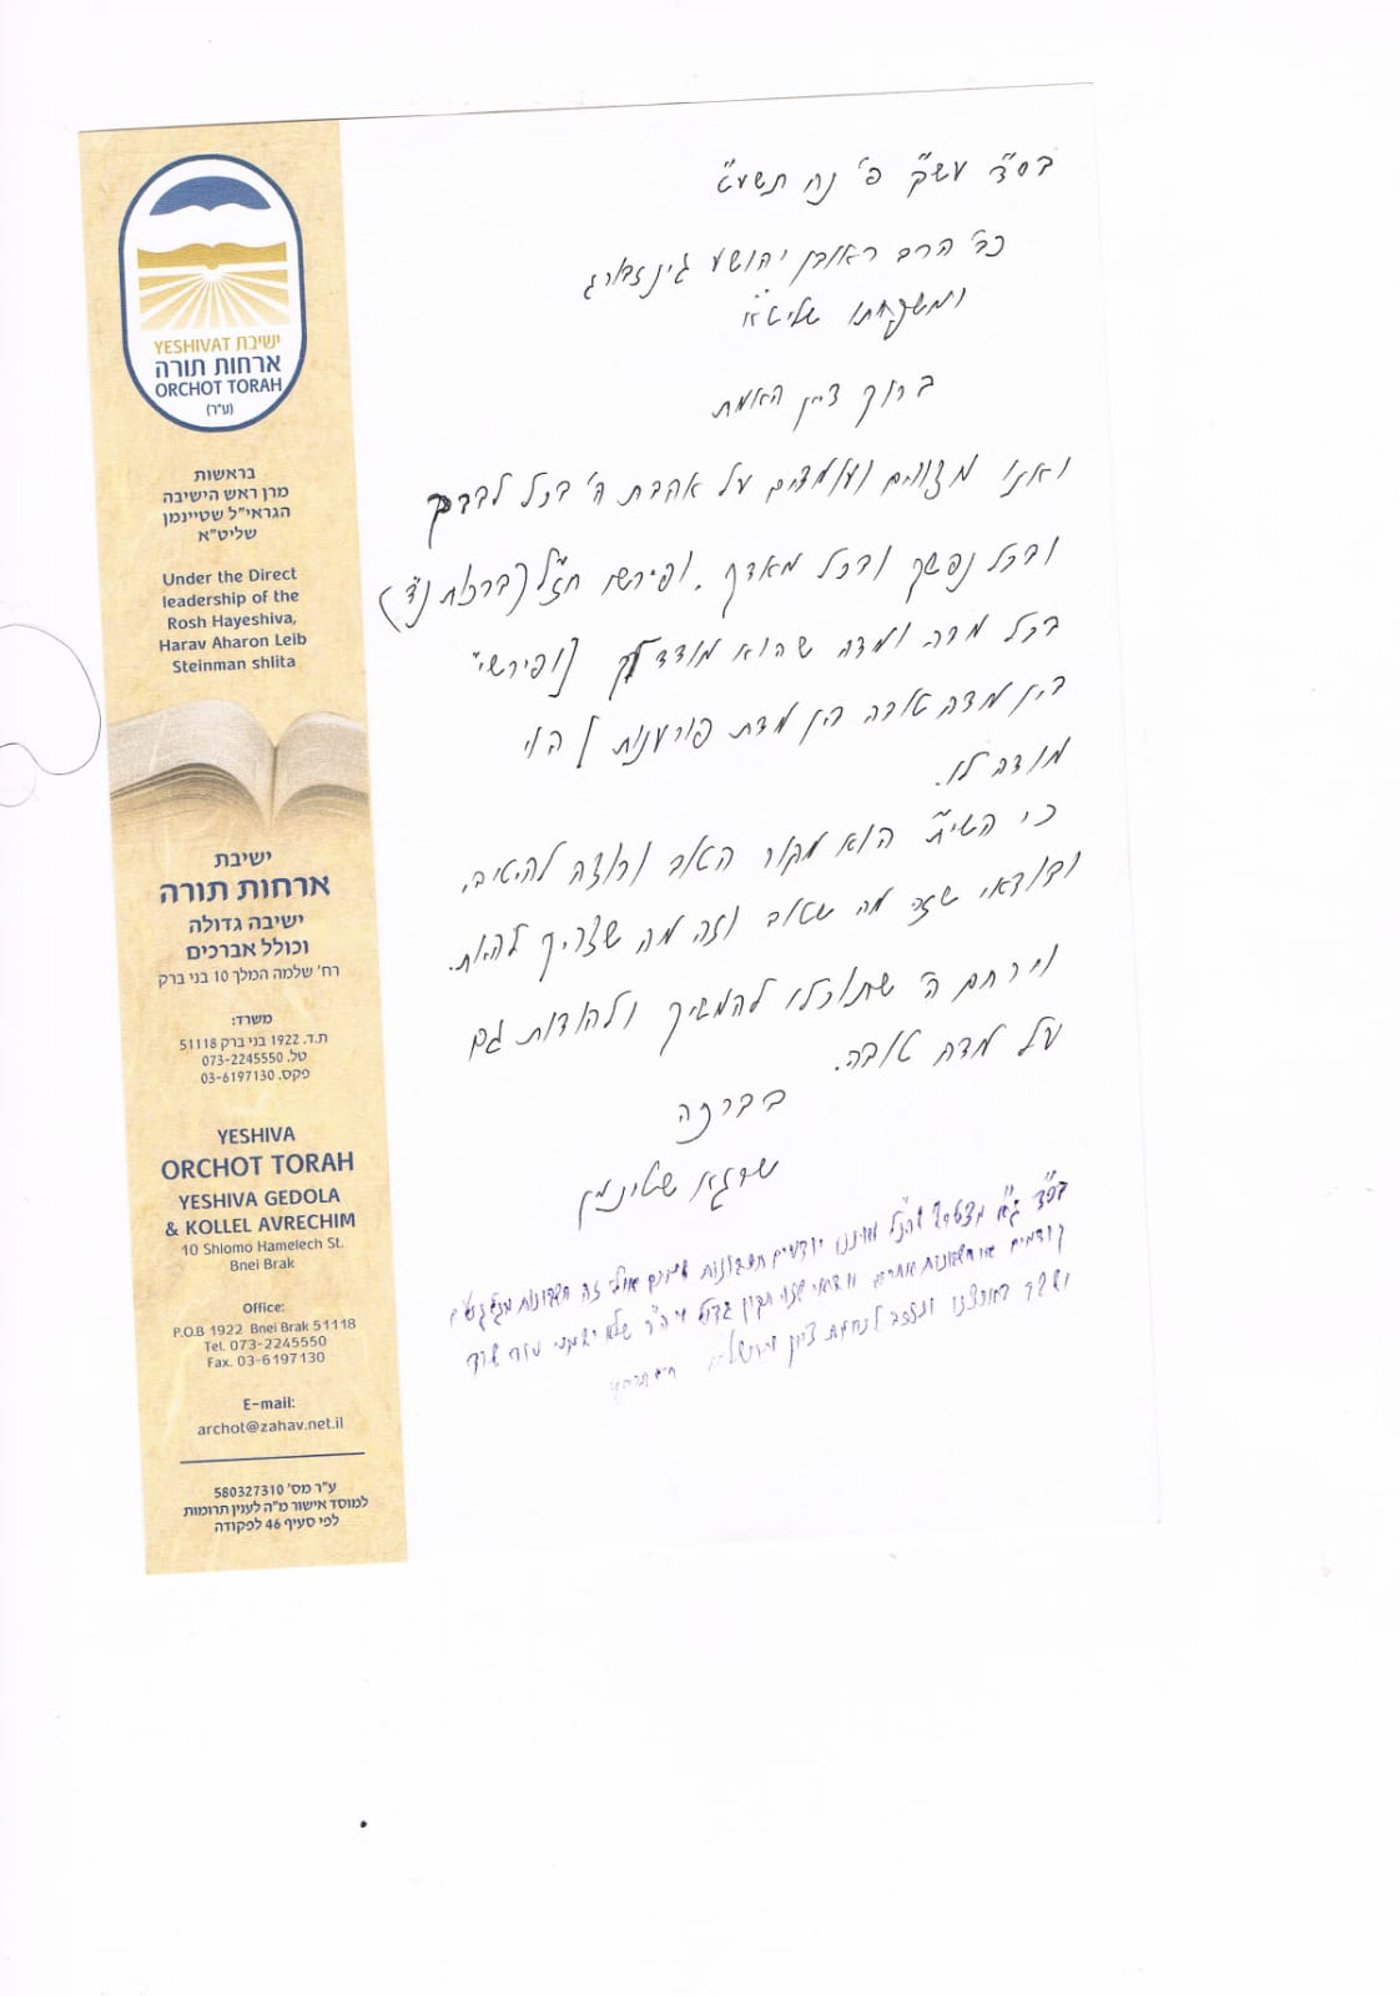 בס"ד עש"ק פ' נח תשע"ט
כב' הרב ראובן יהושע גינזבורג
ומשפחתו שליט"א
ברוך דיין האמת
ואנו מצווים ועומדים על אהבת ה' בכל לבבך
ובכל נפשך ובכל מאדך. ופירשו חז"ל (ברכות נ"ד)
בכל מדה ומדה שהוא מודד לך [ופירש"י
בין מדה טובה בין מדת פורענות] הוי
מודה לו.
כי השי"ת הוא מקור הטוב ורוצה להיטיב,
ובודאי שזה מה שטוב וזה מה שצריך להיות.
וירחם ה' שתוכלו להמשיך ולהודות גם
על מדה טובה.
בברכה
שרגא שטינמן
בס"ד גם אני יודעים חשבונות שמים אולי זה חשבונות מגלגולים
קודמים או חשבונות אחרים וודאי שזה תיקון גדול
ונזכה לנחמת ציון וירושלים
ישיבת YESHIVAT
ארחות תורה
ORCHOT TORAH
(ע"ר)
בראשות
מרן ראש הישיבה
הגראי"ל שטיינמן
שליט"א
Under the Direct
leadership of the
Rosh Hayeshiva,
Harav Aharon Leib
Steinman shlita
ישיבת
ארחות תורה
ישיבה גדולה
וכולל אברכים
רח' שלמה המלך 10 בני ברק
משרד:
ת.ד. 1922 בני ברק 51118
טל. 073-2245550
פקס. 03-6197130
YESHIVA
ORCHOT TORAH
YESHIVA GEDOLA
& KOLLEL AVRECHIM
10 Shlomo Hamelech St.
Bnei Brak
Office:
P.O.B 1922 Bnei Brak 51118
Tel. 073-2245550
Fax. 03-6197130
E-mail:
archot@zahav.net.il
ע"ר מס' 580327310
למוסד אישור מ"ה לענין תרומות
לפי סעיף 46 לפקודה